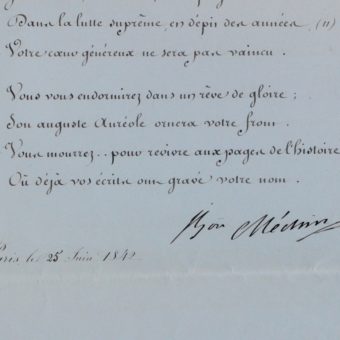 Dans la lutte suprême, en dépit des années, (11)
Votre cœur généreux ne sera pas vaincu.
Vous vous endormirez dans un rêve de gloire ;
Son auguste Auréole ornera votre front.
Vous mourrez .. pour revivre aux pages de l'histoire
Où déjà vos écrits ont gravé votre nom.
Méchin
Paris le 25 Juin 1842